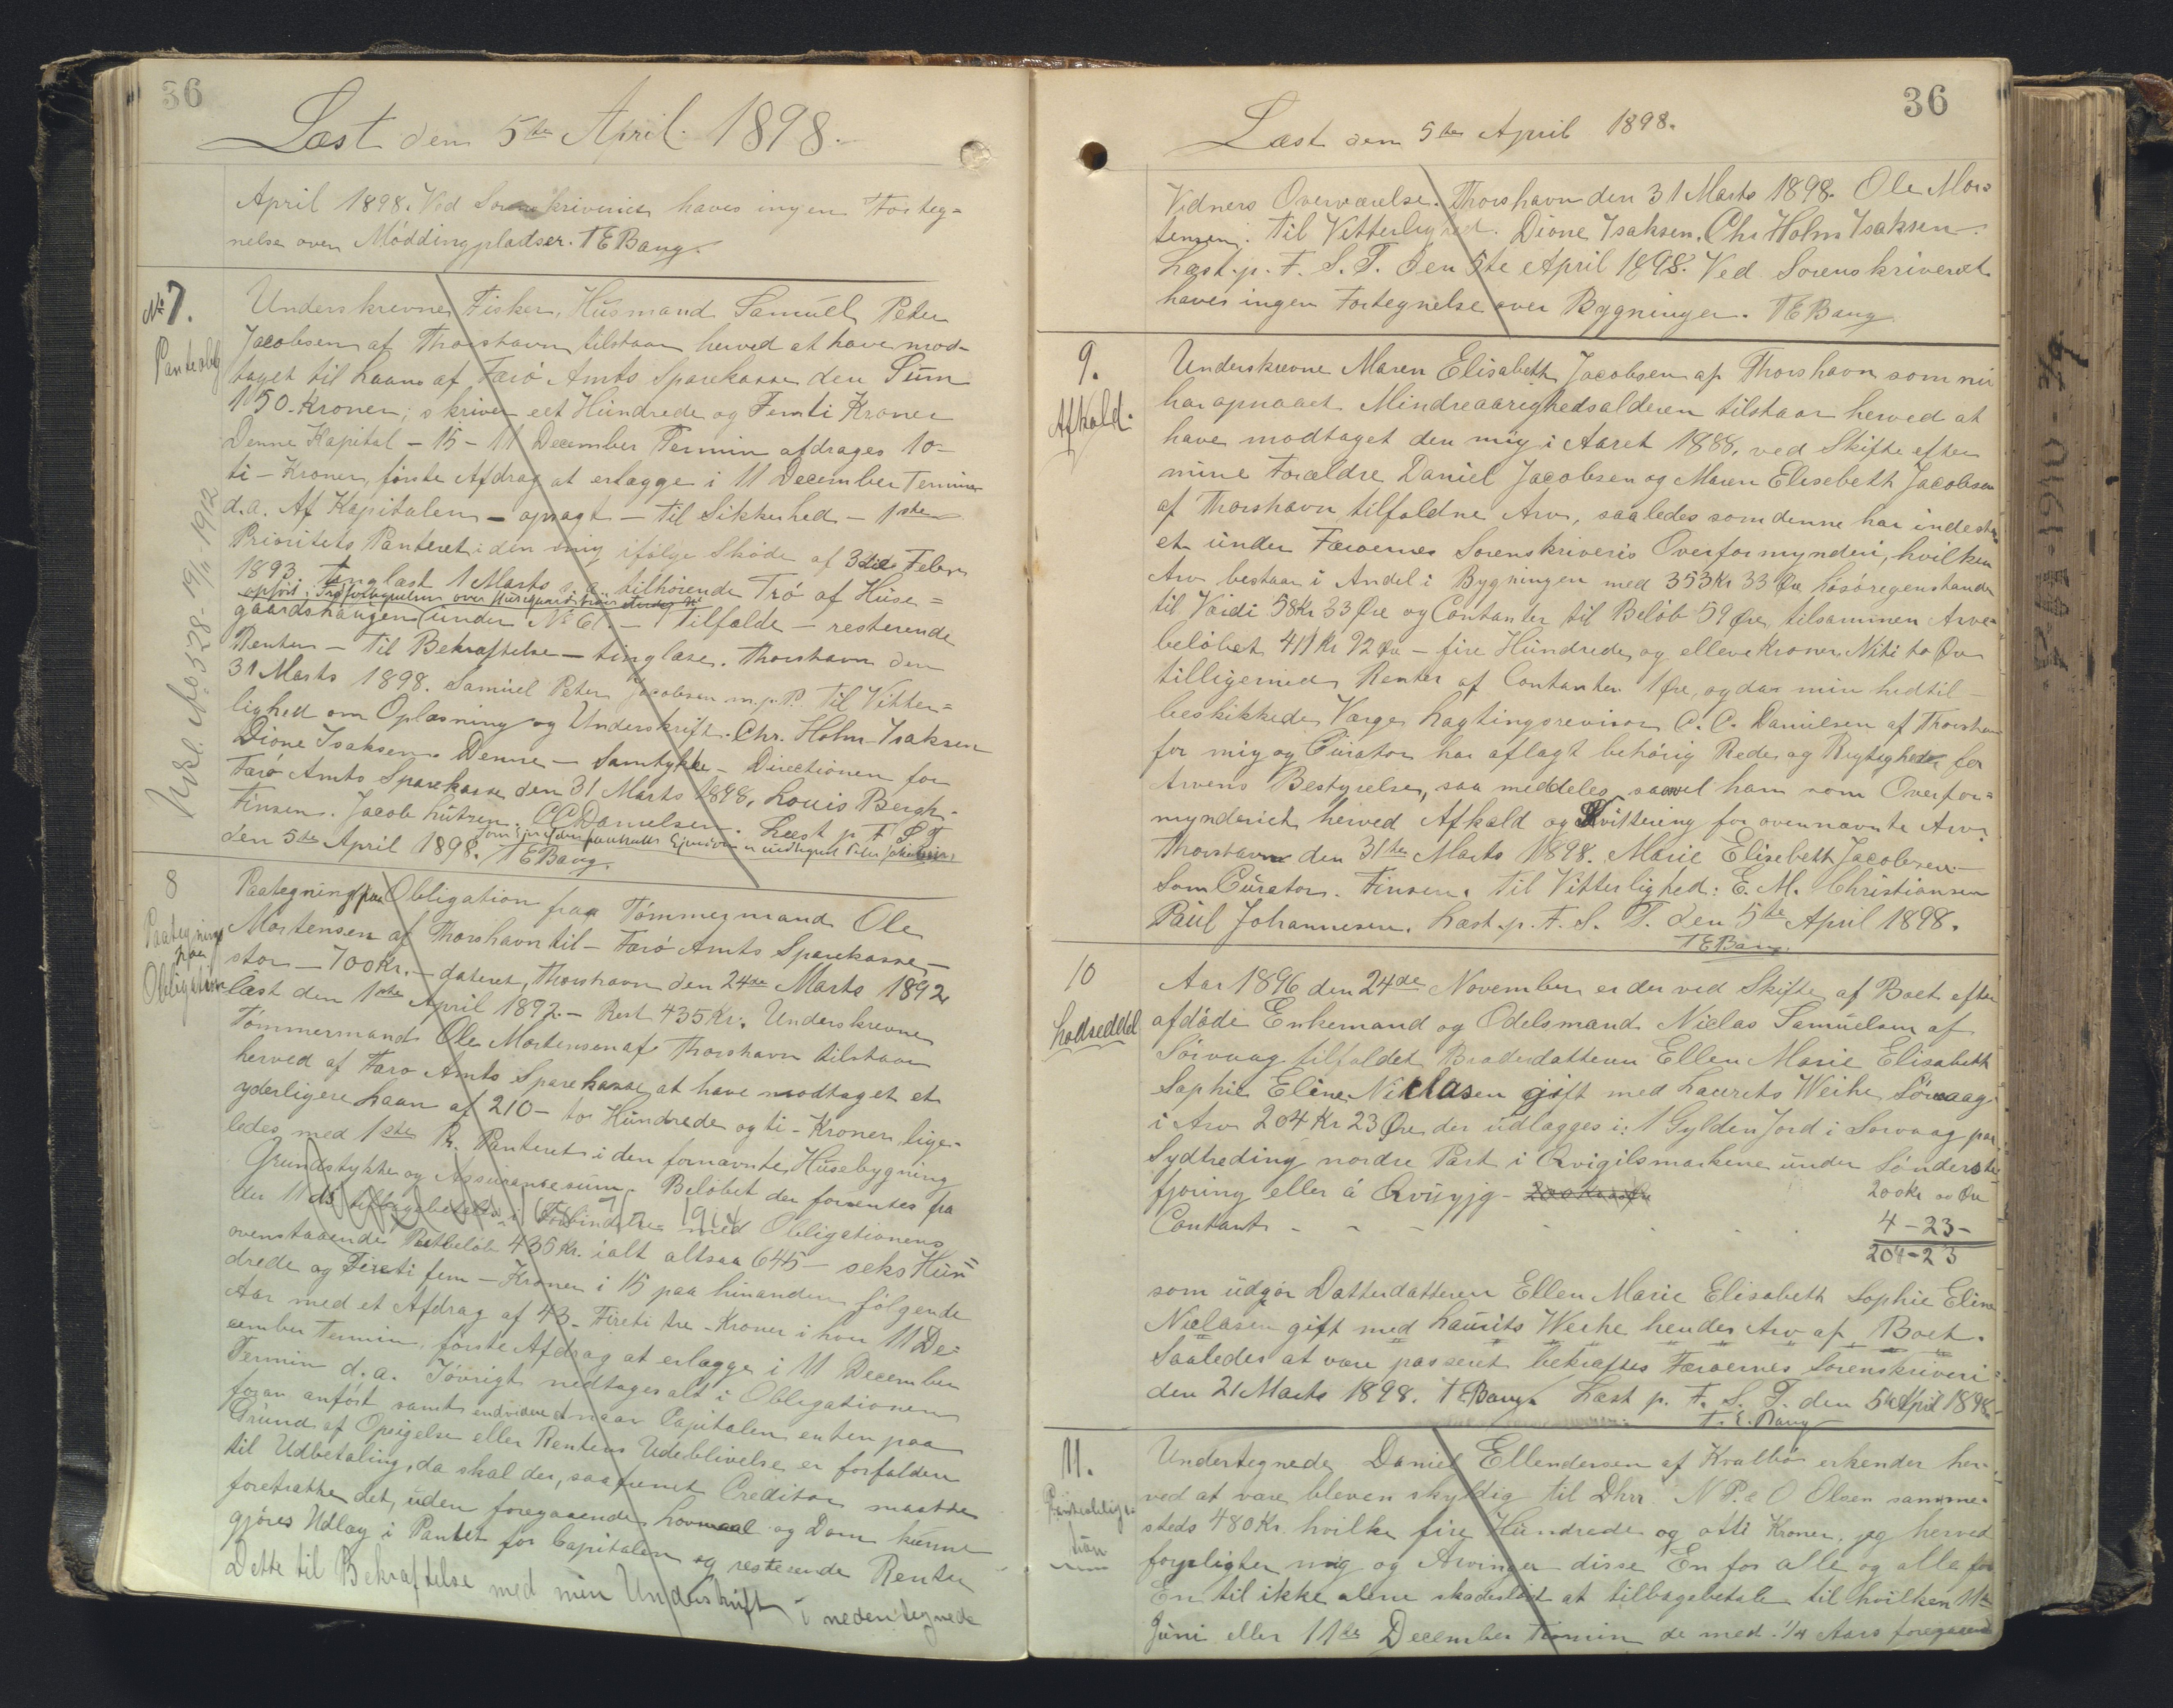 36
Læst den 5te April 1898.
April 1898. Ved Sorenskriveriet haves ingen Forteg=
nelse over Möddingpladser. T E Bang.
No 7.
Panteobl
Underskrevne Fisker, Husmand Samuel Peter
Jacobsen af Thorshavn tilstaar herved at have mod-
taget til Laans af Færö Amts Sparekasse den Sum
150 Kroner, skriver eet Hundrede og Femti Kroner
Denne Kapital - 15 - 11 December Termin afdrages 10-
ti - Kroner, første Afdrag at erlægge i 11 December Termin
d.a. Af Kapitalen - opsagt - til Sikkerhed - 1ste
Prioritets Panteret i den mig ifölge Sköde af 3die Febr
1893 tinglæst 1 Marts s. a. tilhörende Trö af Huse=
gaardshaugen under No 61. - Tilfælde - resterende
Renter - Til Bekræftelse - tinglæse. Thorshavn den
31 Marts 1898. Samuel Peter Jacobsen m.p.P. Til Vitter=
lighed om Oplæsning og Underskrift. Chr. Holm Isaksen
Dione Isaksen. Denne - Samtykke - Directionen for
Færö Amts Sparekasse den 31 Marts 1898, Louis Bergh.
Finsen. Jacob Lützen. C C Danielsen. Læst p F S T
den 5te April 1898. T E Bang.
Udsl. No 528 - 19/11 - 1912
8
Paategning
paa
Obligation
Paategning paa Obligation fra Tömmermand Ole
Mortensen af Thorshavn til - Færö Amts Sparekasse -
stor - 700 Kr. - dateret, Thorshavn den 24de Marts 1892
læst den 1ste April 1892 - Rest 435 Kr. Underskrevne
Tömmermand Ole Mortensen af Thorshavn tilstaar
herved af Færo Amts Sparekasse at have modtaget et
yderligere Laan af 210 - to Hundrede og ti - Kroner, lige-
ledes med 1ste Pr. Panteret i den fornævnte Husebygning
Grundstykke og Assurancesum. Beløbet der forrentes fra
den 11 ds tilbagebetales i Forbindelse med Obligationens
ovenstaaende Restbelöb 435 Kr. ialt altsaa 645 - seks Hun=
drede og Fireti fem - Kroner i 15 paa hinanden fölgende
Aar med et Afdrag af 43 - Fireti tre - Kroner i hver 11 De=
cember Termin, förste Afdrag at erlægge i 11 December
Termin d.a. Iövrigt vedtages alt i Obligationen
foran anfört samt endvidere at naar Capitalen enten paa
Grund af Opsigelse eller Rentens Udeblivelse er forfalden
til Udbetaling, da skal der, saafremt Creditor maatte
foretrække det, uden foregaaende Lovmaal og Dom kunne
gjöres Udlæg i Pantet for Capitalen og resterende Renter
Dette til Bekræftelse med min Underskrift i nedentegnede
36
Læst den 5te April 1898.
Vidners Overværelse. Thorshavn den 31 Marts 1898. Ole Mor
tensen. Til Vitterlighed. Dione Isaksen. Chr Holm Isaksen.
Læst. p. F. S. T. den 5te April 1898. Ved Sorenskriveriet
haves ingen Fortegnelse over Bygninger. T E Bang
9.
Afkald.
Underskrevne Maren Elisabeth Jacobsen af Thorshavn som nu
har opnaaet Mindreaarighedsalderen tilstaar herved at
have modtaget den mig i Aaret 1888, ved Skifte efter
mine Forældre Daniel Jacobsen og Maren Elisebeth Jacobsen
af Thorshavn tilfaldne Arv, saaledes som denne har indestaa
et under Færoernes Sorenskriveris Overformynderi, hvilken
Arv bestaar i Andel i Bygningen med 353 Kr 33 Øre Lösöregenstande
til Værdi 58 Kr 33 Øre og Contanter til Belöb 59 Øre, tilsammen Arve=
belöbet 411 Kr 92 Øre - fire Hundrede og elleve Kroner Niti to Øre
tilligemed Renter af Contanter 1 Øre, og da min hidtil-
beskikkede Værge Lagtingsrevisor C. C. Danielsen af Thorshavn
for mig og Curator har aflagt behörig Rede og Rigtighed for
Arvens Bestyrelse, saa meddeles saavel ham som Overfor=
mynderiet herved Afkald og Kvittering for ovennævnte Arv.
Thorshavn den 31te Marts 1898. Marie Elisebeth Jacobsen -
Som Curator. Finsen. Til Vitterlighed: E. M. Christiansen
Paul Johannesen. Læst. p. F. S. T. den 5te April 1898.
T E Bang.
10
Lodseddel
Aar 1896 den 24de November er der ved Skifte af Boet efter
afdöde Enkemand og Odelsmand Niclas Samuelsen af
Sörvaag tilfaldet Broderdatteren Ellen Marie Elisabeth
Sophie Eline Niclasen gift med Laurits Weihe Sörvaag
i Arv 204 Kr 23 Øre der udlægges i: 1 Gylden Jord i Sorvaag paa
Sydtreding nordre Part i Qvigilsmarkene under Sönderste
fjoring eller á Qvüyjg - 200 Kr 00 Øre
200 Kr 00 Øre
Contant - - - - 4 - 23 -
204 - 23
som udgör Datterdatteren Ellen Marie Elisabeth Sophie Eline
Niclasen gift med Laurits Weihe hendes Arv af Boet.
Saaledes at være passeret bekræftes Færoernes Sorenskriveri
den 21 Marts 1898. T E Bang. Læst p. F. S. T. den 5te April 1898
T. E. Bang
11.
Undertegnede Daniel Ellendersen af Kvalbö erkender her-
ved at være bleven skyldig til Dhrr N P. & O Olsen samme-
steds 480 Kr. hvilke fire Hundrede og otti Kroner, jeg herved
forpligter mig og Arvinger disse En for alle og alle for
En til ikke alene skadeslöst at tilbagebetale til hvilken 11te
Juni eller 11te December Termin de med 1/4 Aars foregaaende